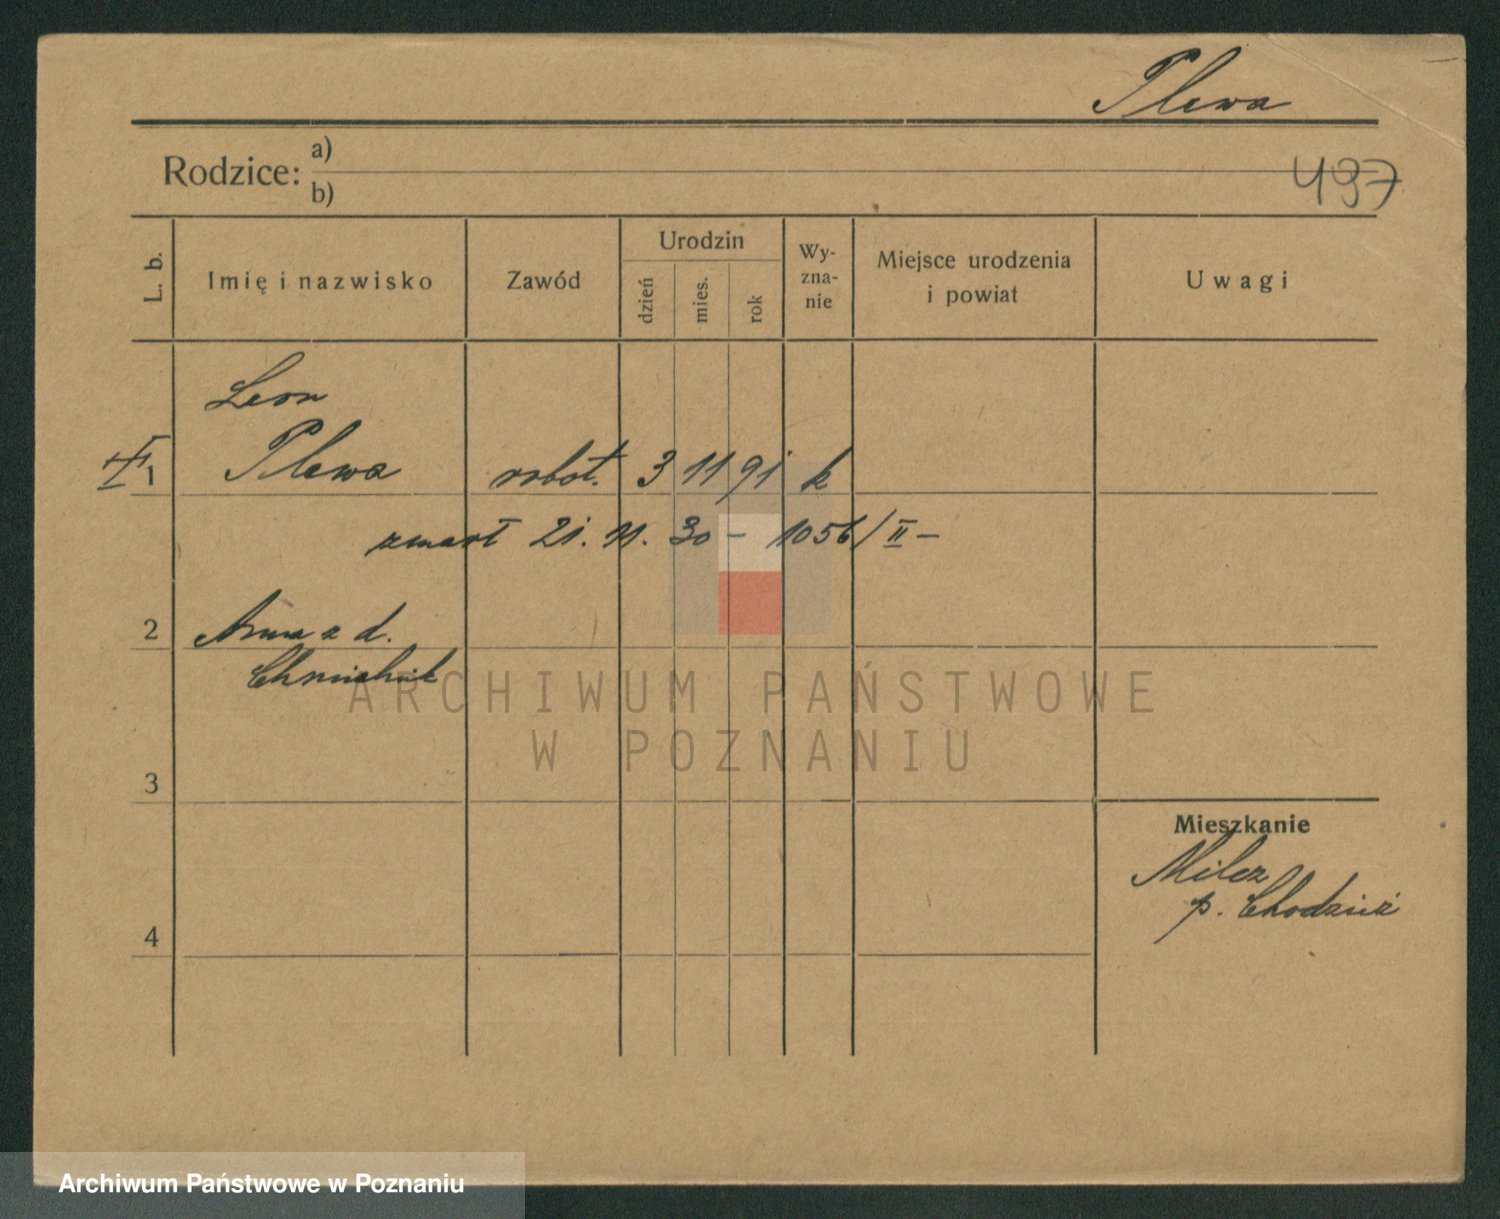 Plewa
Rodzice: a)
b)
497
L. b.
Imię i nazwisko
Zawód
Urodzin
dzień
mies.
rok
Wy-
zna-
nie
Miejsce urodzenia
i powiat
Uwagi
Leon
1 Plewa robot. 3 11 91 k
zmarł 21. 11. 30 – 1056/II –
2 Anna z d.
ARCHIWUM PAŃSTWOWE
W POZNANIU
3
Mieszkanie
Milcz
p. Chodzież
4
Archiwum Państwowe w Poznaniu